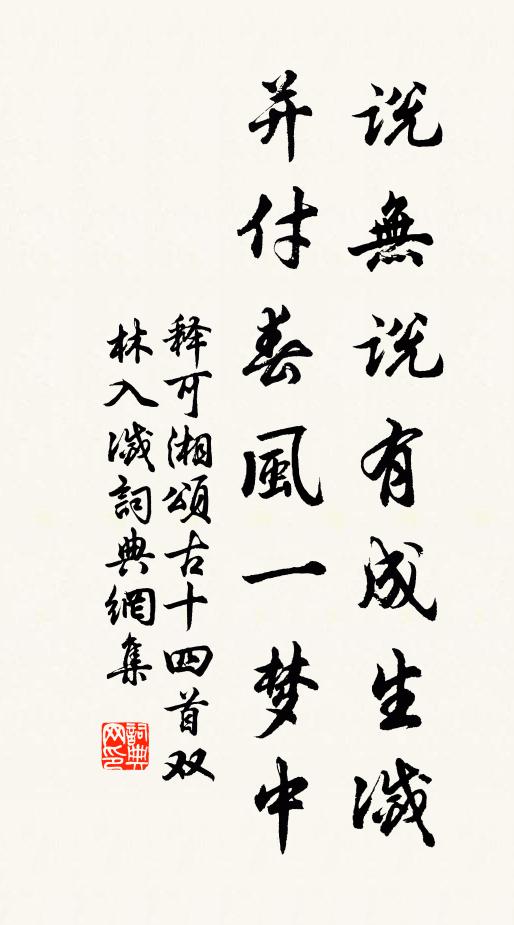 説無説有成生滅
并付春風一梦中
释可湘頌古十四首双
林入滅詞典網集
詞典网印